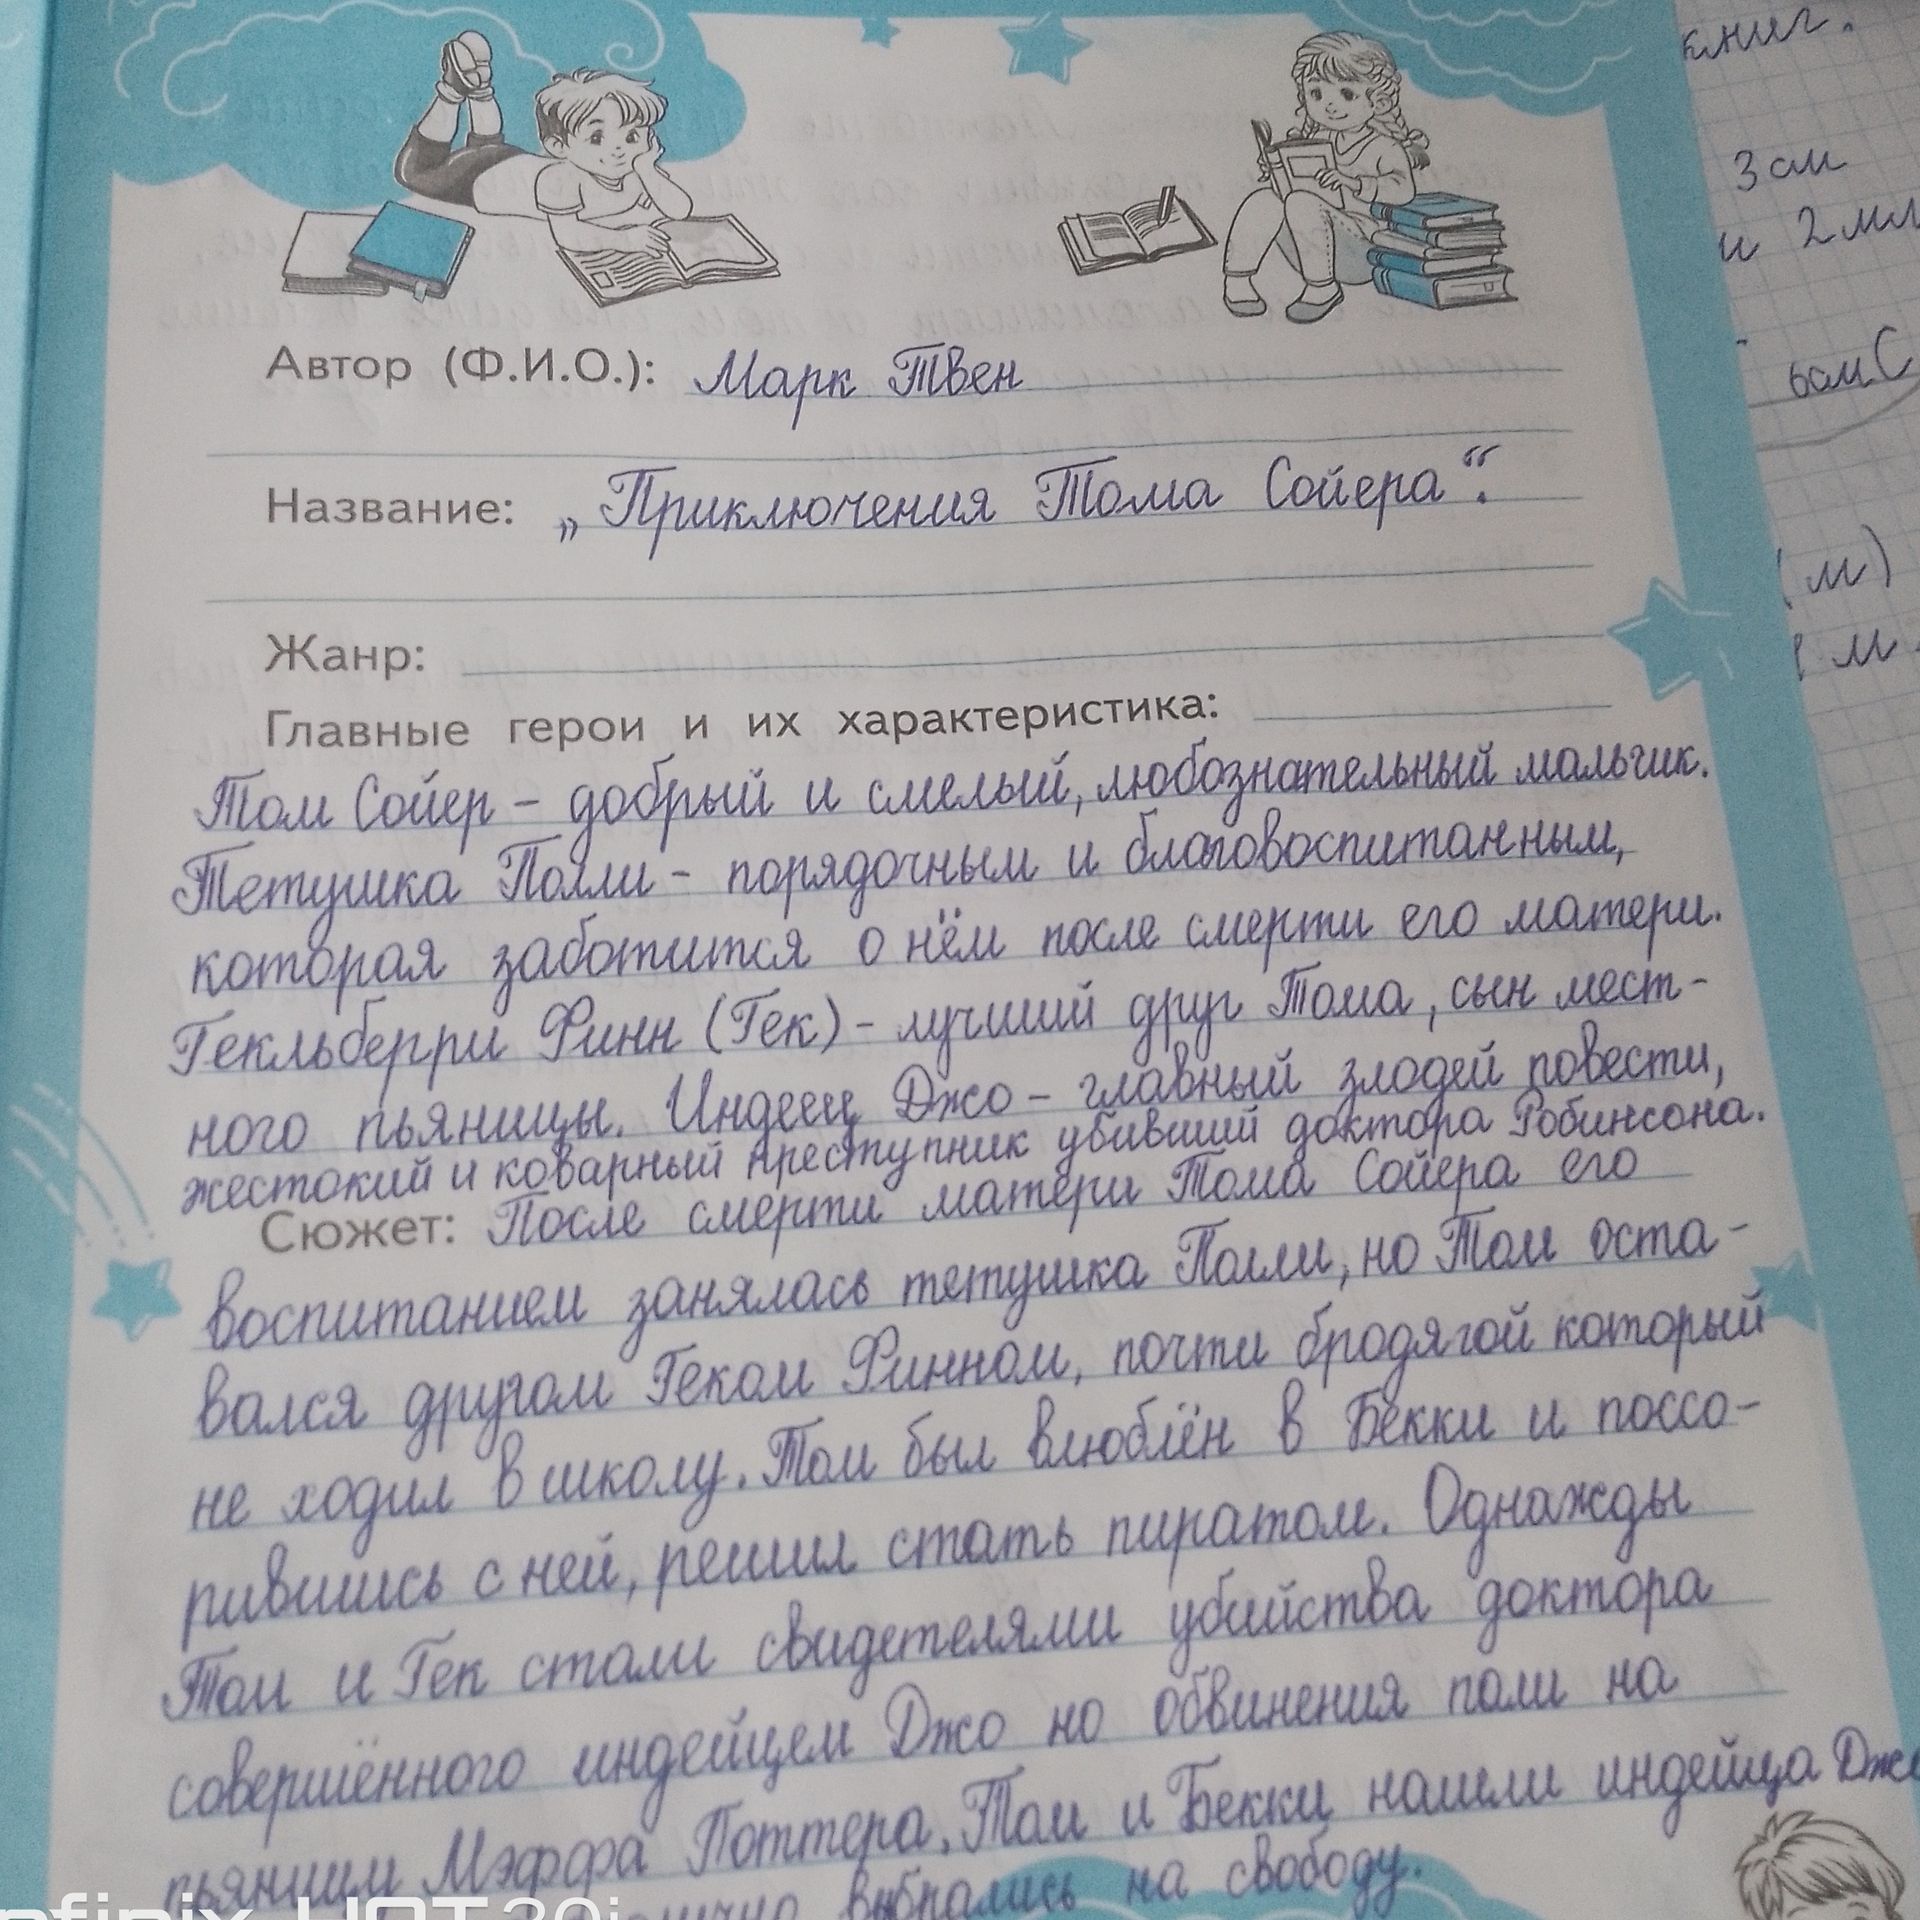 книг.
3 см
и 2 мл
Автор (Ф.И.О.): Марк Твен
Название: „Приключения Тома Сойера“.
(м)
м.
Жанр:
Главные герои и их характеристика:
Том Сойер – добрый и смелый, любознательный мальчик.
Тетушка Полли – порядочным и благовоспитанным,
которая заботится о нём после смерти его матери.
Гекльберри Финн (Гек) – лучший друг Тома, сын мест-
ного пьяницы. Индеец Джо – главный злодей повести,
жестокий и коварный преступник убивший доктора Робинсона.
Сюжет: После смерти матери Тома Сойера его
воспитанием занялась тетушка Полли, но Том оста-
вался другом Геком Финном, почти бродягой который
не ходил в школу. Том был влюблён в Бекки и поссо-
рившись с ней, решил стать пиратом. Однажды
Том и Гек стали свидетелями убийства доктора
совершённого индейцем Джо но обвинения пали на
пьяницы Мэффа Поттера. Том и Бекки нашли индейца Джо
выбрались на свободу.
nfinix HOT 30i